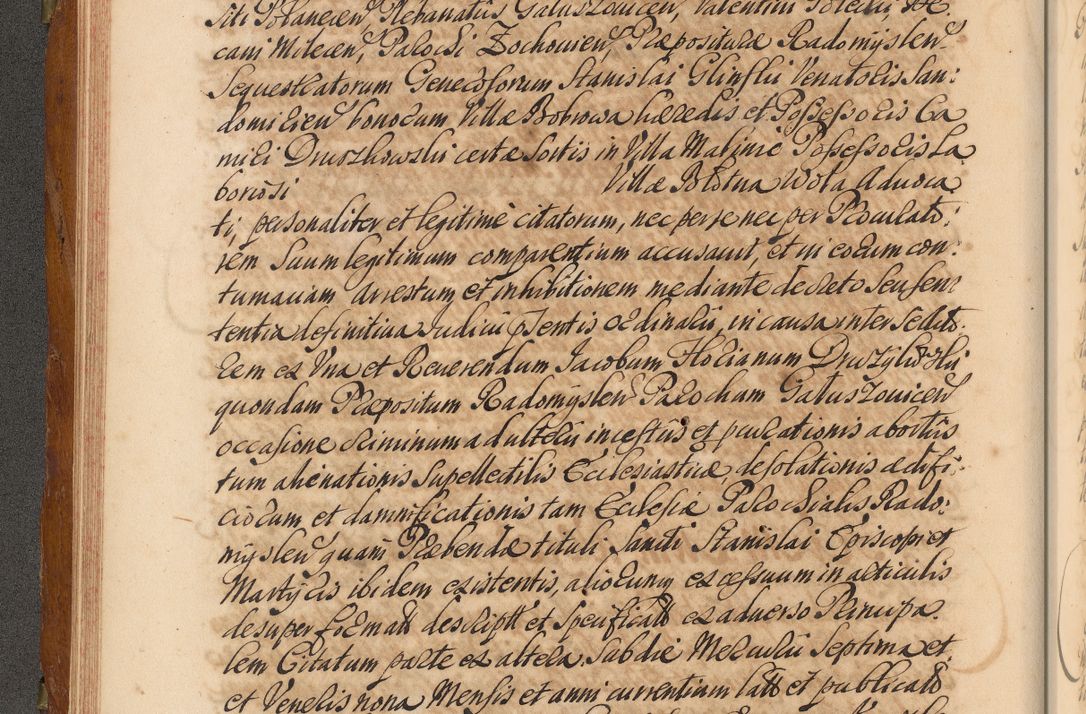 siti Polanecen, Plebanatus Galuszovicen, Valentini Solecki, De
cani Milecen, Parochi Zochovien, Præpositurae Radomyslen
Sequestratorum Generosorum Stanislai Glinskii Venatoris San:
domirien bonorum Villæ Bobrowa hæredis et Possessoris Ca
miri Druszkowski certæ sortis in Villa Malinie Possessoris La
boriosi Villæ Blotna Wola Advoca
ti, personaliter et legitimè citatorum, nec per se nec per Procurato:
rem Suum legitimum comparentium accusavit, et in eorum con:
tumaciam arrestum et inhibitionem mediante decreto seu sen:
tentia definitiva Judicii pntis ordinarii, in causa inter Instito:
rem ex Una et Reverendum Jacobum Florianum Druszylowski
quondam Præpositum Radomyslen Parocham Galuszovicen
occasione criminum adulterii incestus et pcurationis abortus
tum alienationis Supellectilis Ecclesiasticæ, desolationis ædifi:
ciorum et damnificationis tam Ecclesiæ Parochialis Rado:
myslen quam Præbendæ tituli Sancti Stanislai Episcopi et
Martyris ibidem existentis, aliorumq excessuum in articulis
desuper formatt descriptt et specificatt ex adverso Principa
lem Citatum parte ex altera, Sub die Mercurii Septima et
et Veneris nona Mensis et anni currentium latt et publicatt